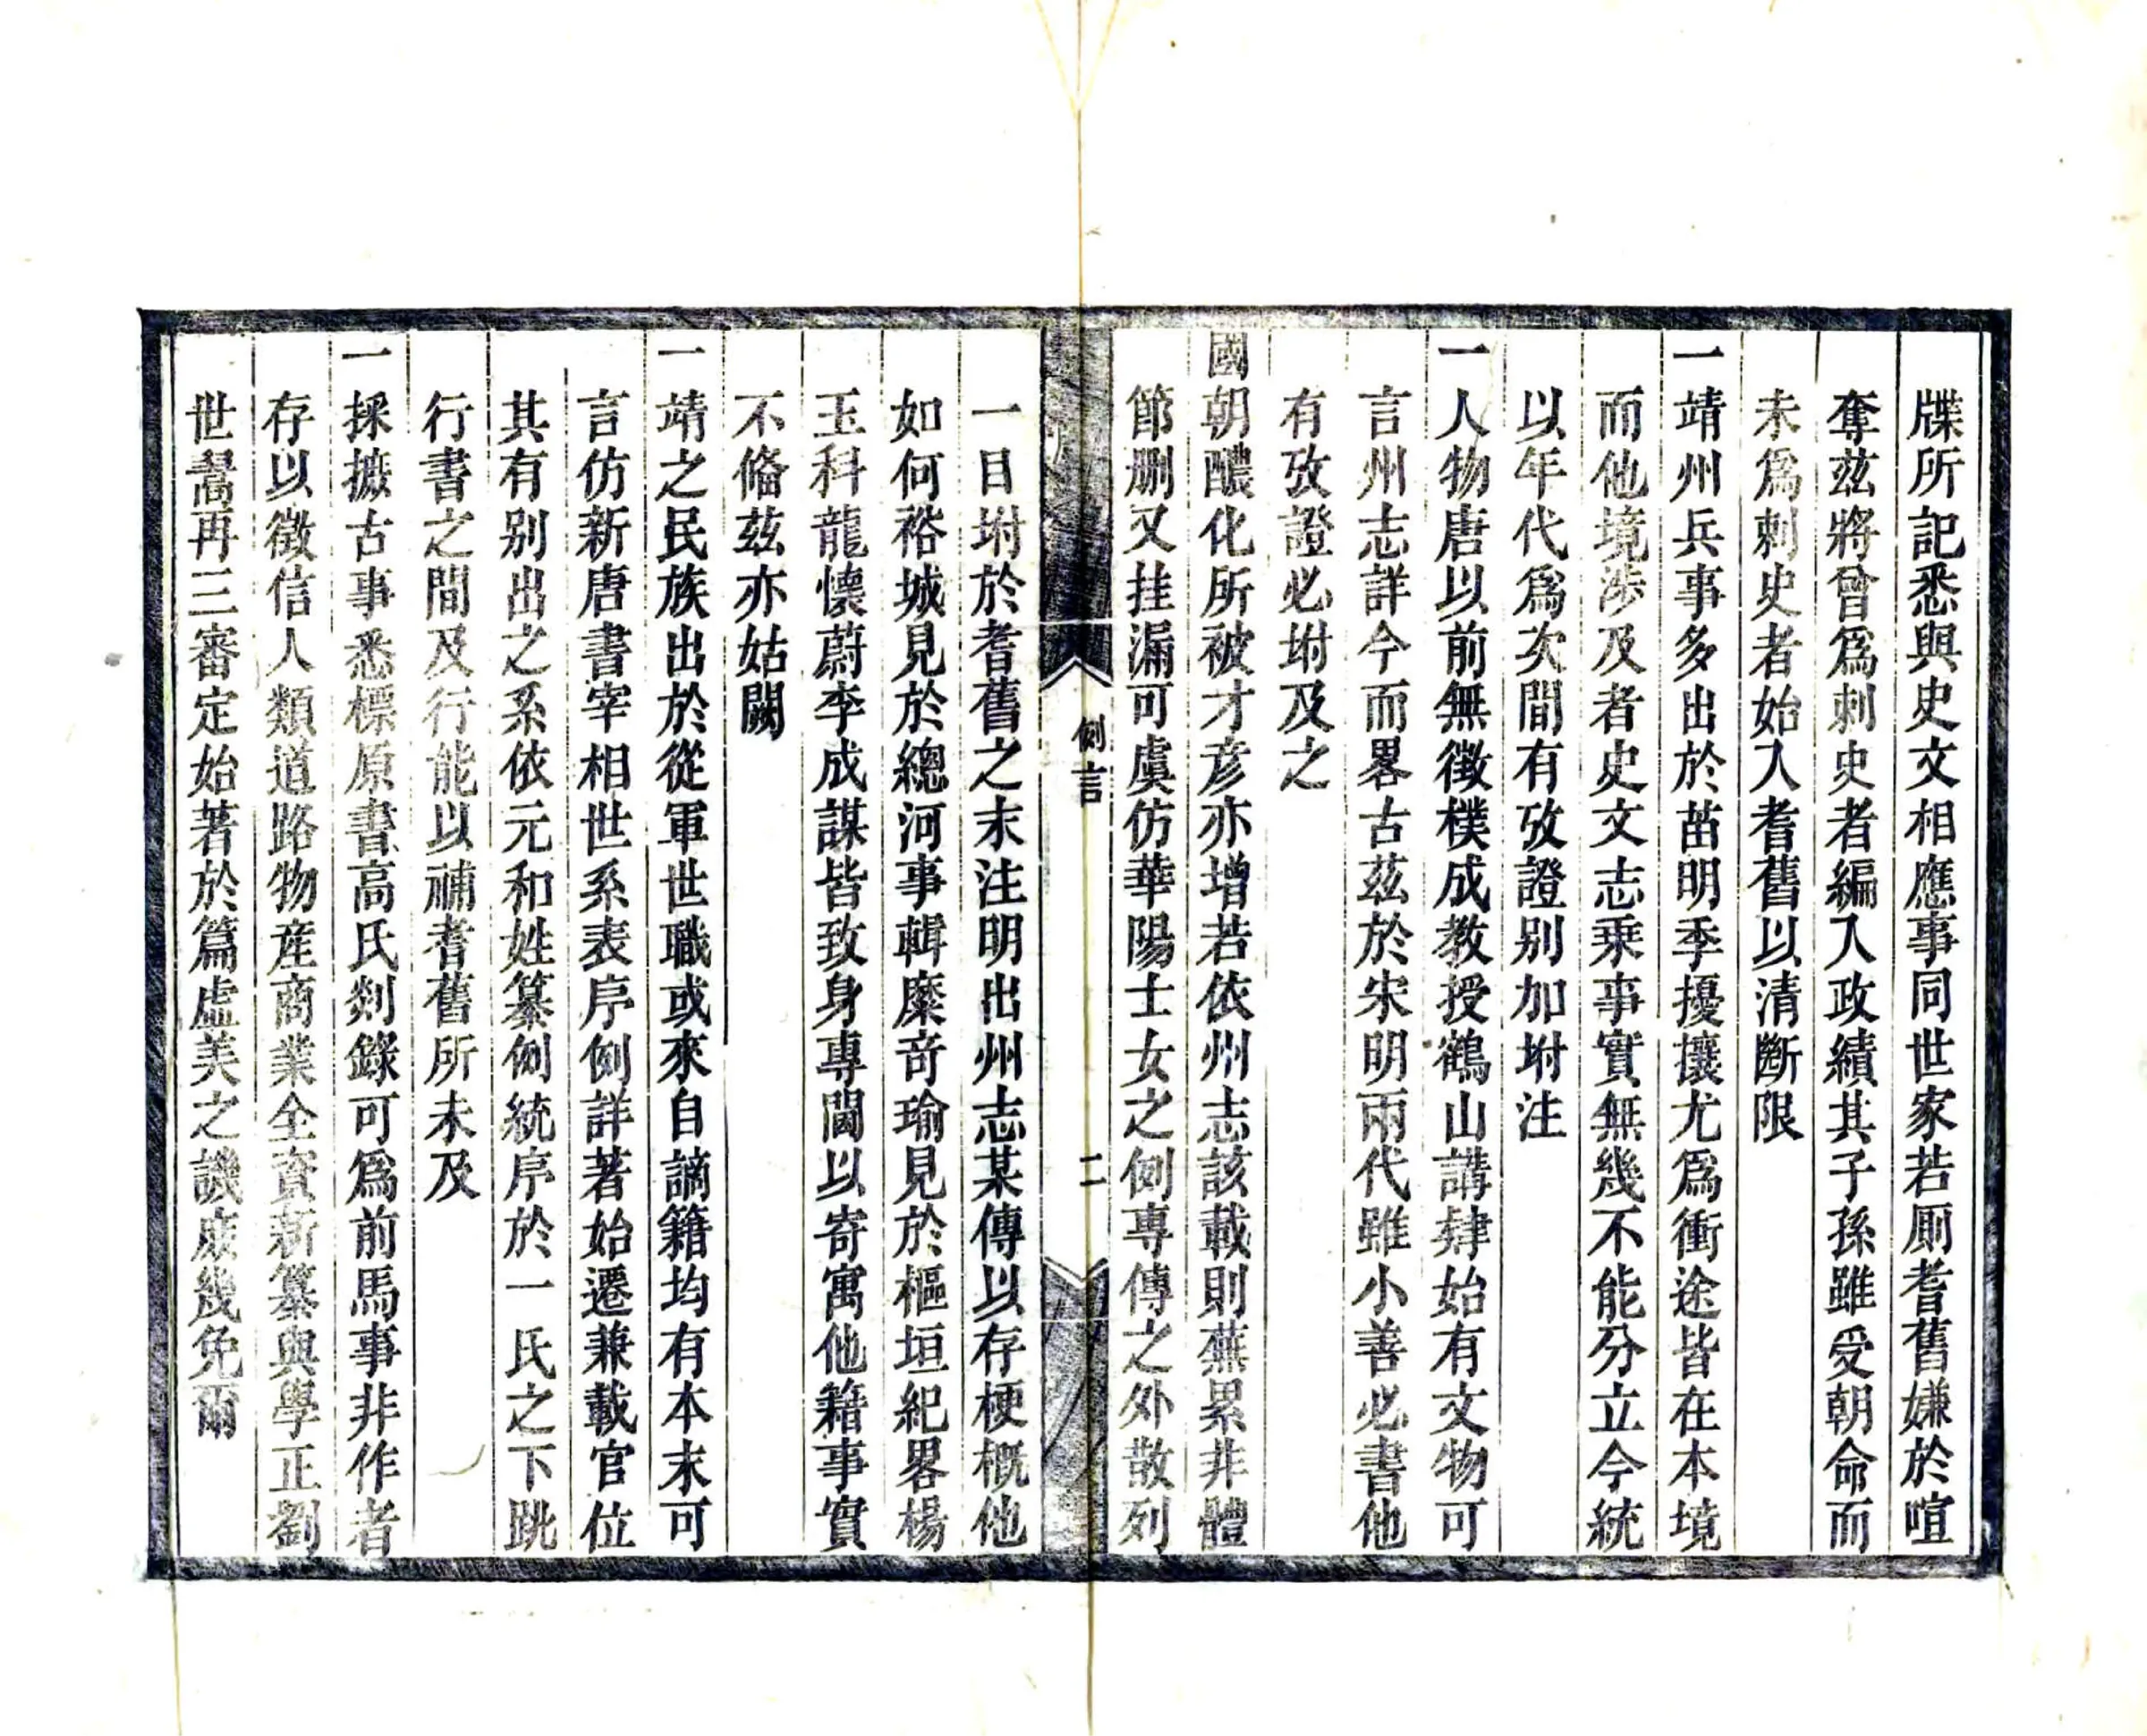 牒所記悉與史文相應事同世家若厠耆舊嫌於喧
奪茲將曾爲刺史者編入政績其子孫雖受朝命而
未爲刺史者始入耆舊以清斷限
一靖州兵事多出於苗明季擾攘尤爲衝途皆在本境
而他境涉及者史文志乘事實無幾不能分立今統
以年代爲次間有攷證别加坿注
一人物唐以前無徵樸成教授鶴山講肄始有文物可
言州志詳今而畧古茲於宋明兩代雖小善必書他
有攷證必坿及之
國朝醲化所被才彦亦增若依州志該載則蕪累非體
節删又挂漏可虞仿華陽士女之例專傳之外散列
例言
二
一目坿於耆舊之末注明出州志某傳以存梗概他
如何裕城見於總河事輯糜奇瑜見於樞垣紀畧楊
玉科龍懷蔚李成謀皆致身專閫以寄寓他籍事實
不僃茲亦姑闕
一靖之民族出於從軍世職或來自謫籍均有本末可
言仿新唐書宰相世系表序例詳著始遷兼載官位
其有别出之系依元和姓纂例統序於一氏之下跳
行書之間及行能以補耆舊所未及
一採摭古事悉標原書高氏剡錄可爲前馬事非作者
存以徵信人類道路物産商業全資新纂與學正劉
世翯再三審定始著於篇虛美之譏庶幾免爾